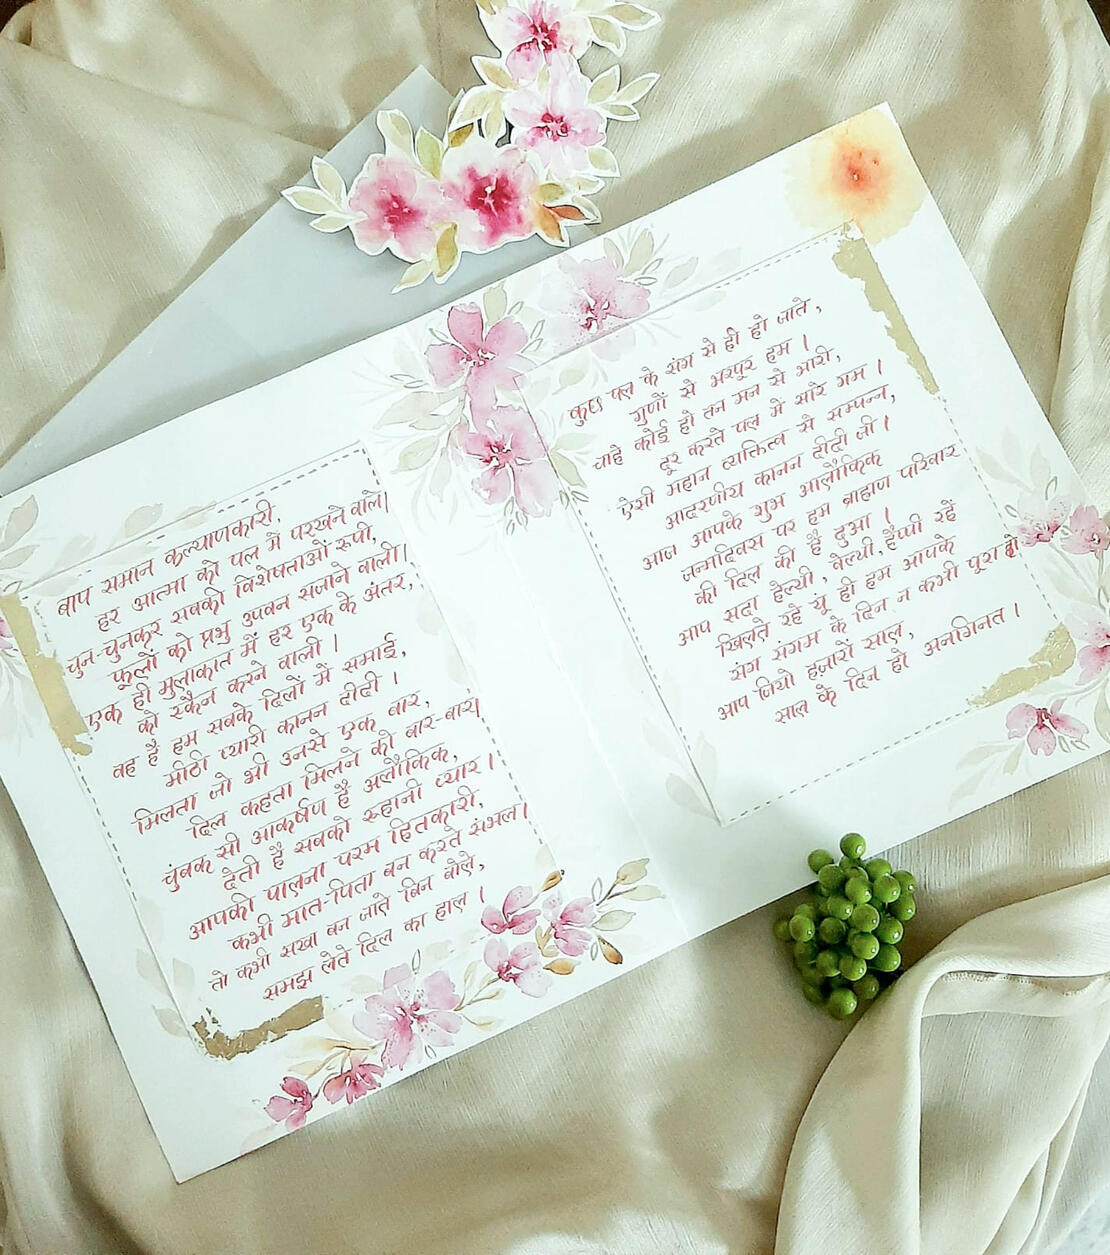 बाप समान कल्याणकारी,
हर आत्मा को पल में परखने वाले।
चुन-चुनकर सबकी विशेषताओं रूपी,
फूलों को प्रभु उपवन सजाने वाली।
एक ही मुलाकात में हर एक के अंतर,
को स्कैन करने वाली।
वह हैं हम सबके दिलों में समाई,
मीठी प्यारी कानन दीदी।
मिलता जो भी उनसे एक बार,
दिल कहता मिलने को बार-बार।
चुंबक सी आकर्षण है अलौकिक,
देती हैं सबको रूहानी प्यार।
आपकी पालना परम हितकारी,
कभी मात-पिता बन करते संभल।
तो कभी सखा बन जाते बिन बोले,
समझ लेते दिल का हाल।
कुछ पल के संग से ही हो जाते,
गुणों से भरपूर हम।
चाहे कोई हो तन मन से भारी,
दूर करते पल में सारे गम।
ऐसी महान व्यक्तित्व से सम्पन्न,
आदरणीय कानन दीदी जी।
आज आपके शुभ आलौकिक
जन्मदिवस पर हम ब्राह्मण परिवार
की दिल की हैं दुआ।
आप सदा हेल्थी, वेल्थी, हैप्पी रहें
खिलते रहे यूं ही हम आपके
संग संगम के दिन न कभी पूरा हो
आप जियो हज़ारों साल,
साल के दिन हो अनगिनत।